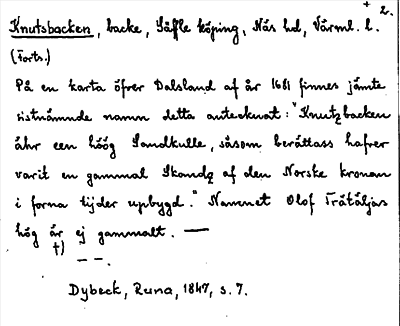 + 2.
Knutsbacken, backe, Säfle köping, Näs hd, Värml. l.
(Forts.)
På en karta öfver Dalsland af år 1681 finnes jämte
sistnämnde namn detta antecknat: "Knutzbacken
ähr een höög Sandkulle, såsom berättass hafver
varit en gammal Skandz af den Norske kronan
i forna tijder upbygd." Namnet Olof Trätäljas
hög är ej gammalt. —
†) — —.
Dybeck, Runa, 1847, s. 7.